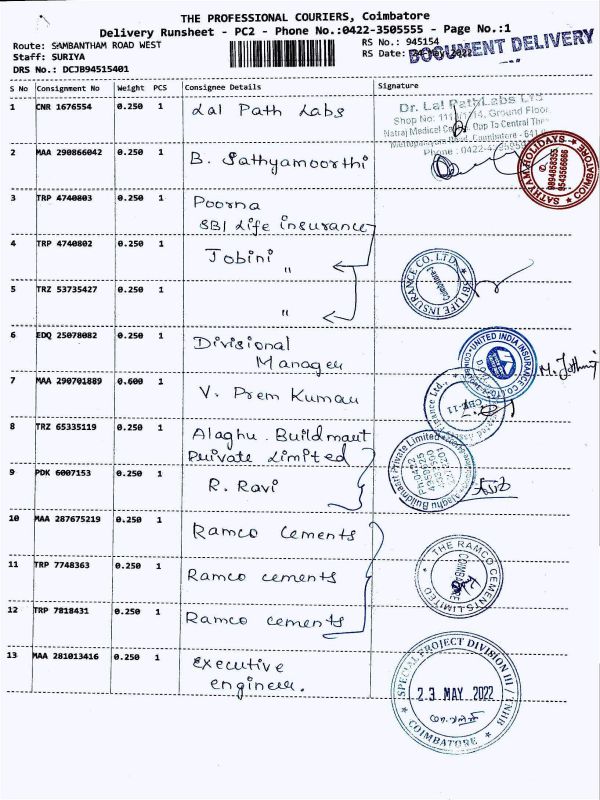 THE PROFESSIONAL COURIERS, Coimbatore
Delivery Runsheet - PC2 - Phone No.:0422-3505555 - Page No.:1
Route: SAMBANTHAM ROAD WEST
RS No.: 945154
Staff: SURIYA
RS Date: 24-May-2022
DOCUMENT DELIVERY
DRS No.: DCJB94515401
S No Consignment No Weight PCS Consignee Details Signature
1 CNR 1676554 0.250 1 Lal Path Labs
Dr. Lal PathLabs LTD
Shop No: Ground Floor
Natraj Medical Opp To Central
Coimbatore
Phone
2 MAA 290866042 0.250 1 B. Sathyamoorthi
SATHYAM HOLIDAYS COIMBATORE
9894858355
9543566686
3 TRP 4740803 0.250 1 Poorna
SBI Life insurance
4 TRP 4740802 0.250 1 Jobini
"
SBI LIFE INSURANCE CO. LTD.
5 TRZ 53735427 0.250 1 "
6 EDQ 25078082 0.250 1 Divisional
Manager
UNITED INDIA INSURANCE CO. LTD.
7 MAA 290701889 0.600 1 V. Prem Kumar
CBE-11
8 TRZ 65335119 0.250 1 Alaghu. Buildmart
Private Limited
Alaghu Buildmart Private Limited
Ph:0422
9 PDK 6007153 0.250 1 R. Ravi
10 MAA 287675219 0.250 1 Ramco Cements
THE RAMCO CEMENTS LIMITED
COIMBATORE
11 TRP 7748363 0.250 1 Ramco cements
12 TRP 7818431 0.250 1 Ramco cements
13 MAA 281013416 0.250 1 Executive
engineer.
SPECIAL PROJECT DIVISION III / TNHB
23 MAY 2022
COIMBATORE